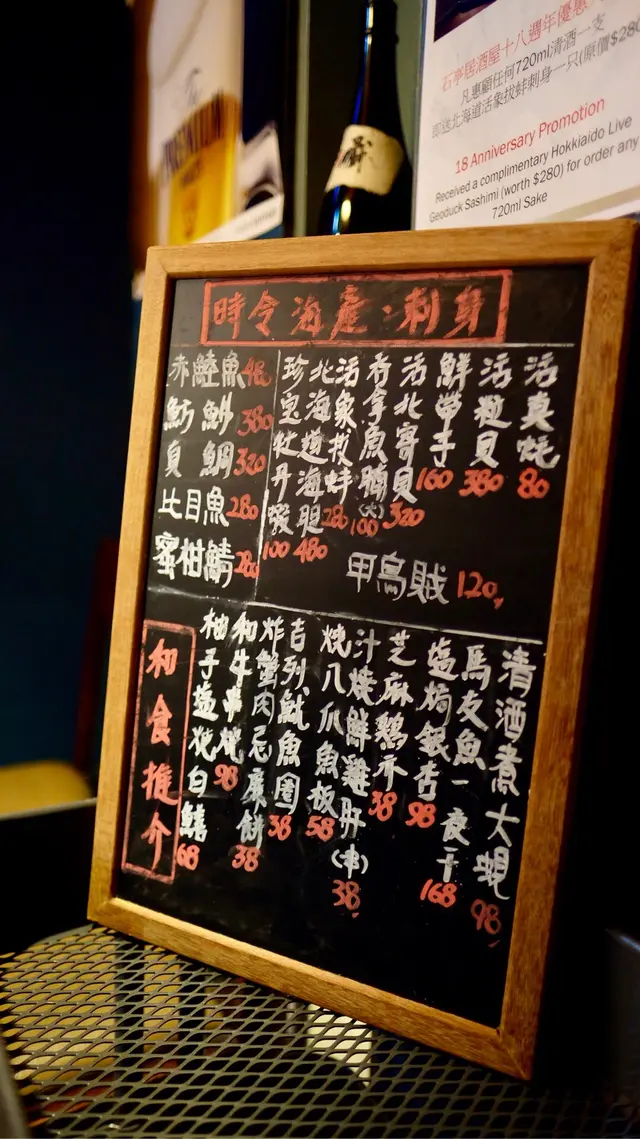 The
PREMIUM
石亭居酒屋十八週年優惠
凡惠顧任何720ml清酒一支
即送北海道活象拔蚌刺身一只(原價$280
18 Anniversary Promotion
Received a complimentary Hokkiaido Live
Geoduck Sashimi (worth $280) for order any
720ml Sake
時令海產·刺身
活真蚝 80
活粒貝 380
鮮帶子 160
活北寄貝 320
冇拿魚腩(火) 100
活象拔蚌 280
北海道海胆 480
珍宝牡丹蝦 100
甲烏賊 120
赤鯥魚 48
魴魦 380
貝鯛 320
比目魚 280
蜜柑鯖 280
和食推介
清酒煮大蜆 98
馬友魚一夜干 168
塩焗銀杏 98
芝麻鷄亦 38
汁燒鮮雞肝(串) 38
燒八爪魚板 58
吉列魷魚圈 38
炸蟹肉忌廉餅 38
和牛串燒 98
柚子塩燒白鱔 68